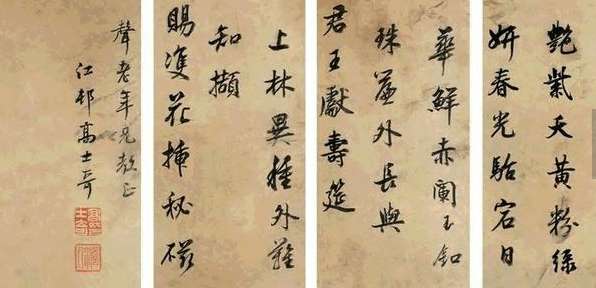 艷紫夭黃粉綠
妍春光駘宕日
華鮮赤闌玉釦
珠簾外長與
君王獻壽筵
上林異種外難
知擷
賜雙花揷秘磁
聲老年兄教正
江邨高士奇